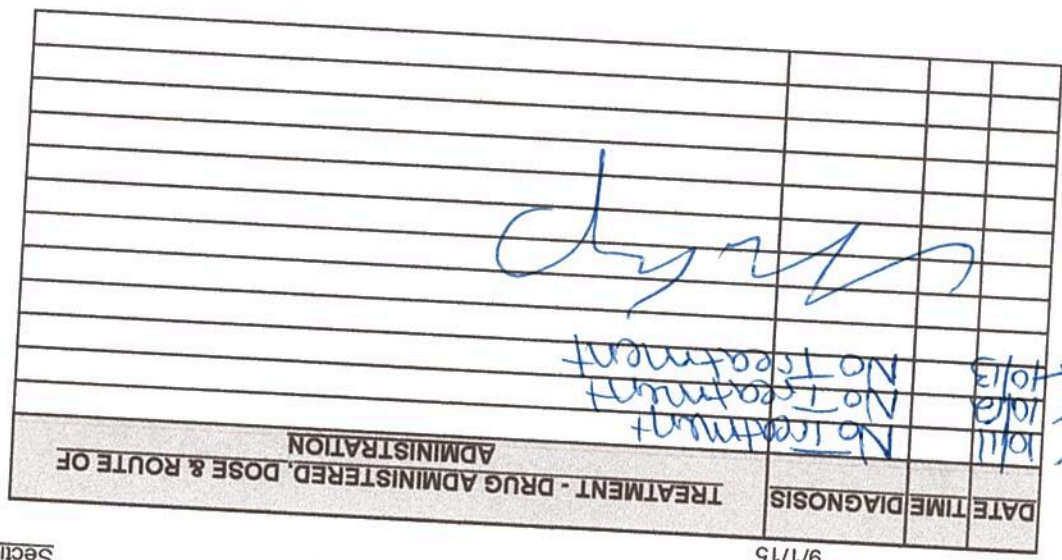 9/1/15
DATE TIME DIAGNOSIS TREATMENT - DRUG ADMINISTERED, DOSE & ROUTE OF ADMINISTRATION
10/11 No Treatment
10/12 No Treatment
10/13 No Treatment